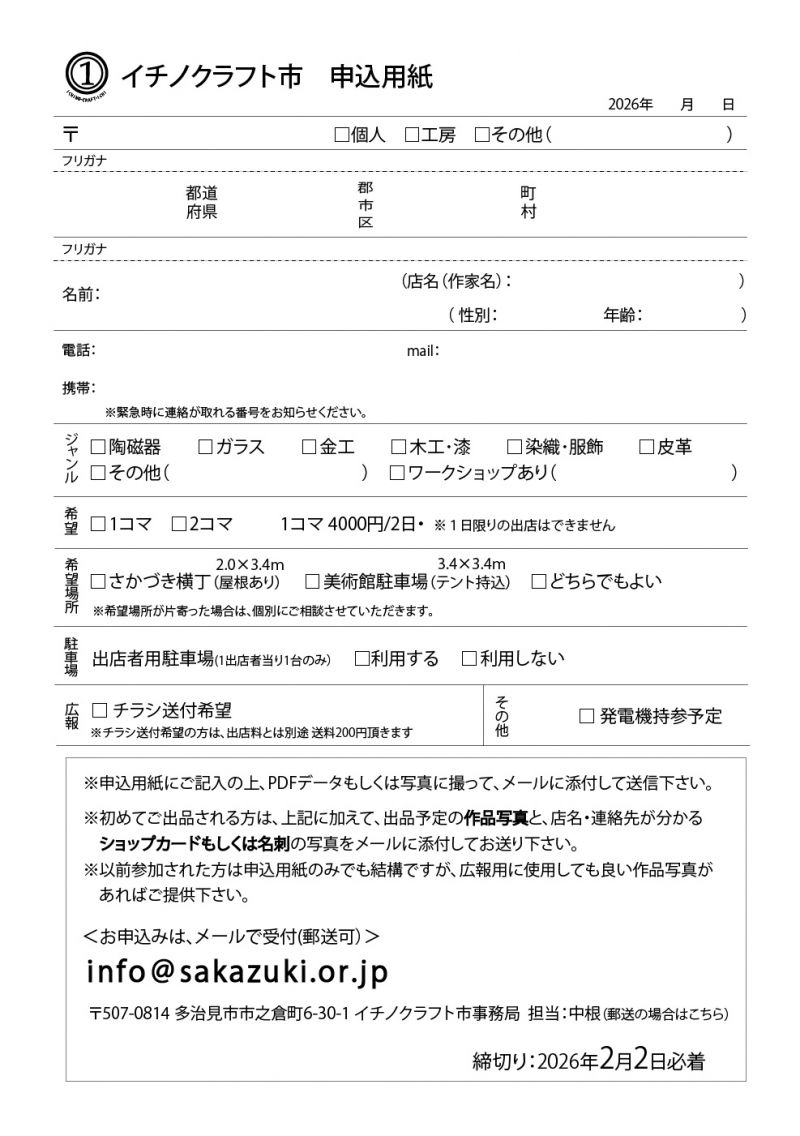 ① イチノクラフト市 申込用紙
2026年 月 日
〒 □個人 □工房 □その他( )
フリガナ
都道府県 郡市区 町村
フリガナ
名前: (店名(作家名): )
( 性別: 年齢: )
電話: mail:
携帯:
※緊急時に連絡が取れる番号をお知らせください。
ジャンル □陶磁器 □ガラス □金工 □木工・漆 □染織・服飾 □皮革
□その他( ) □ワークショップあり( )
希望 □1コマ □2コマ 1コマ 4000円/2日・ ※1日限りの出店はできません
2.0×3.4m 3.4×3.4m
希望場所 □さかづき横丁(屋根あり) □美術館駐車場(テント持込) □どちらでもよい
※希望場所が片寄った場合は、個別にご相談させていただきます。
駐車場 出店者用駐車場(1出店者当り1台のみ) □利用する □利用しない
広報 □ チラシ送付希望
※チラシ送付希望の方は、出店料とは別途 送料200円頂きます
その他 □ 発電機持参予定
※申込用紙にご記入の上、PDFデータもしくは写真に撮って、メールに添付して送信下さい。
※初めてご出品される方は、上記に加えて、出品予定の作品写真と、店名・連絡先が分かる
ショップカードもしくは名刺の写真をメールに添付してお送り下さい。
※以前参加された方は申込用紙のみでも結構ですが、広報用に使用しても良い作品写真が
あればご提供下さい。
<お申込みは、メールで受付(郵送可)>
info@sakazuki.or.jp
〒507-0814 多治見市市之倉町6-30-1 イチノクラフト市事務局 担当:中根(郵送の場合はこちら)
締切り:2026年2月2日必着